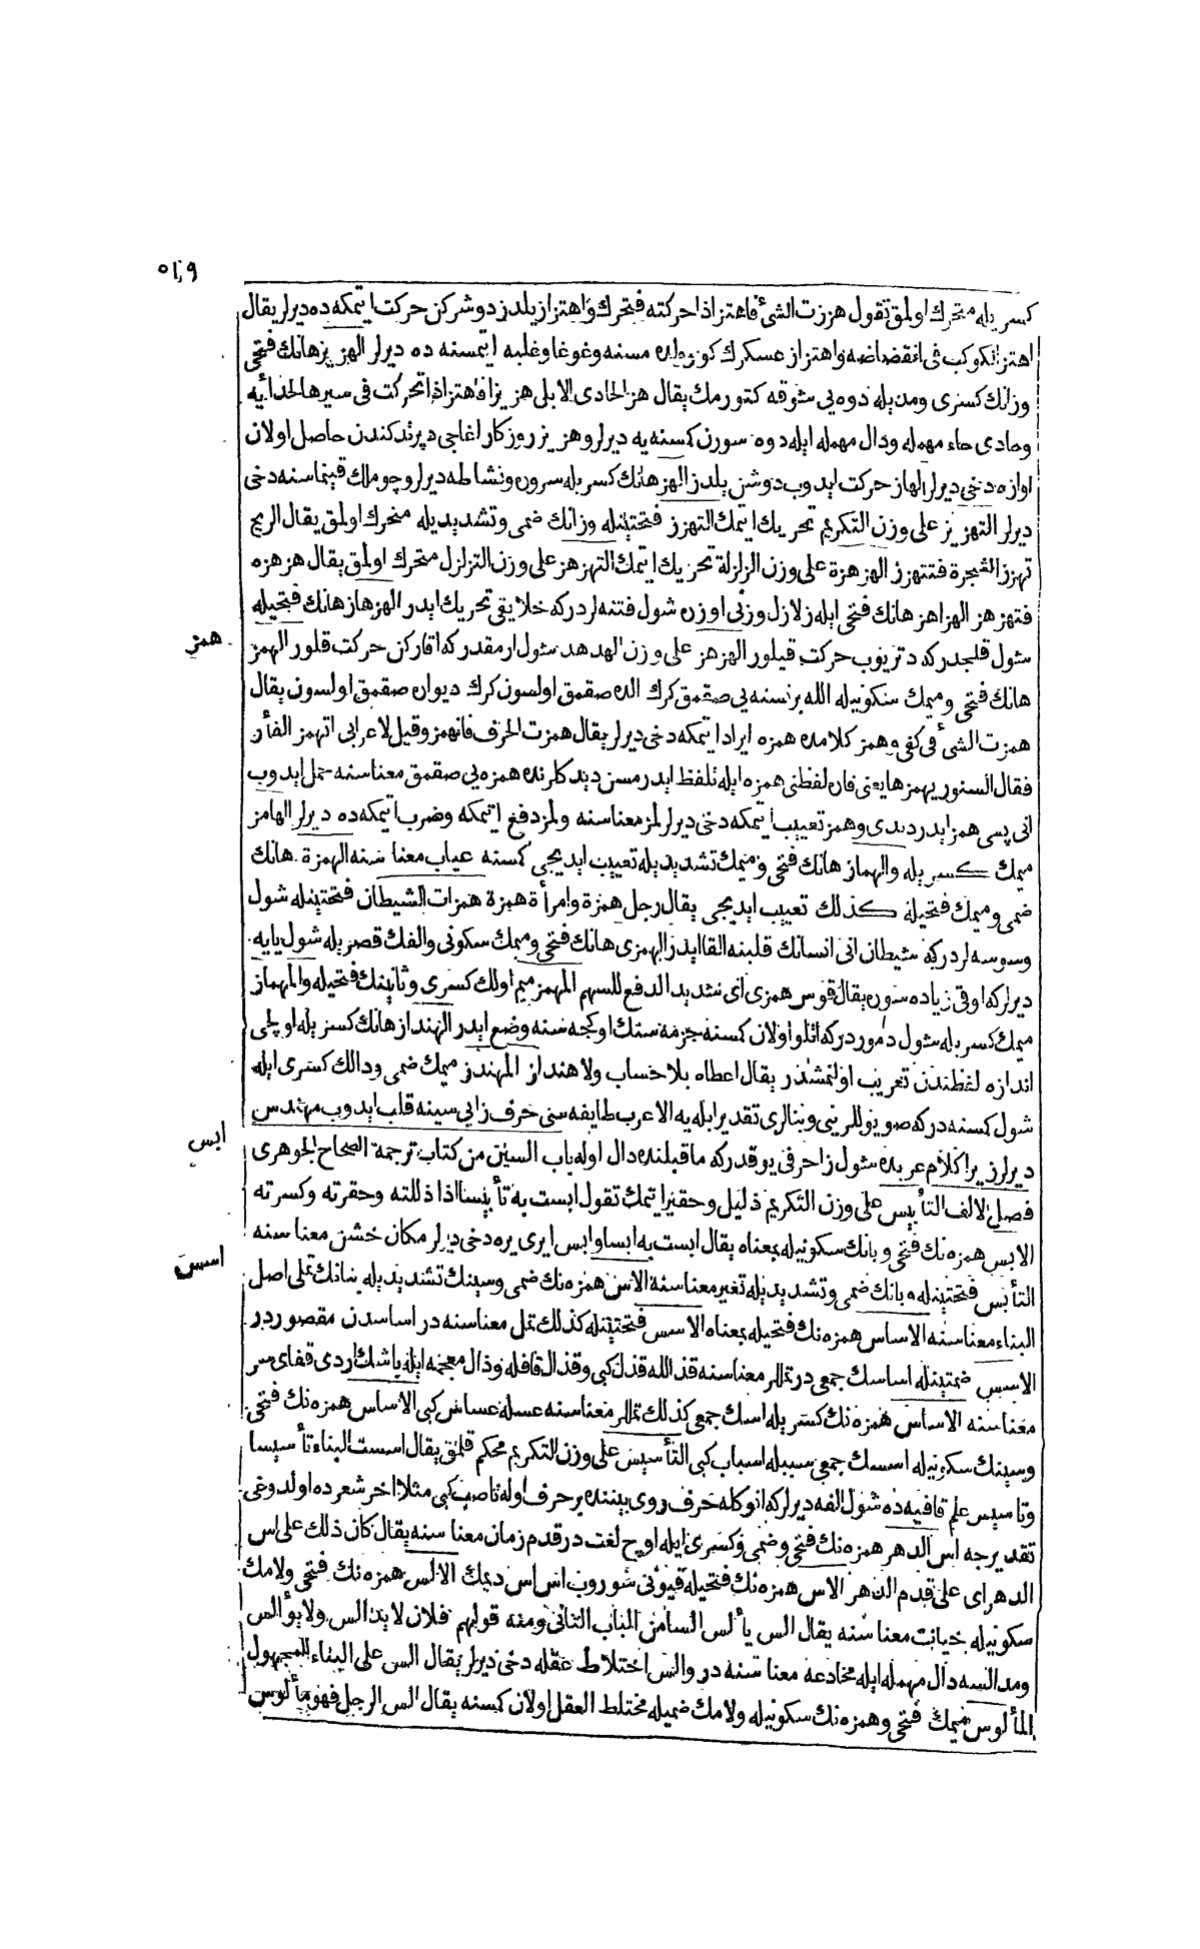 كسريله متحرك اولمق تقول هززت الشئ فاهتز اذا حركته فتحرك واهتزاز يلدز دوشركن حركت ايتمكه ده ديرلر يقال
اهتز الكوكب فى انقضاضه واهتزاز عسكرك مسنه وغوغا وغلبه ايتمسنه ده ديرلر الهزيز هانك فتحى
وزانك كسرى ومديله دوه يى شوقه كتورمك يقال هز الحادى الابل هزيزا فاهتز اذا تحركت فى سيرها لحدائيه
وحادى حاء مهمله ودال مهمله ايله دوه سورن كسنه يه ديرلر وهزيز روزكار اغاجى دپرتدكندن حاصل اولان
اوازه دخى ديرلر الهاز حركت ايدوب دوشن يلدز الهز هانك كسريله سروره ونشاطه ديرلر وچوملك قينماسنه دخى
ديرلر التهزيز على وزن التكريم تحريك ايتمك التهزز فتحتينله وزانك ضمى وتشديديله متحرك اولمق يقال الريح
تهزز الشجرة فتتهزز الهزهزة على وزن الزلزلة تحريك ايتمك التهزهز على وزن التزلزل متحرك اولمق يقال هزهزه
فتهزهز الهزاهز هانك فتحى ايله زلازل وزنى اوزره شول فتنه لردركه خلايقى تحريك ايدر الهزهاز هانك فتحيله
شول قلجدركه دتريوب حركت قيلور الهزهز على وزن الهدهد شول ارمقدركه اقاركن حركت قلور الهمز
هانك فتحى وميمك سكونيله الله برنسنه يى صقمق كرك اله صقمق اولسون كرك ديواره صقمق اولسون يقال
همزت الشئ فى كفى وهمز كلامده همزه ايراد ايتمكه دخى ديرلر يقال همزت الحرف فانهمز وقيل لاعرابى اتهمز الفأر
فقال السنور يهمزها يعنى فاره لفظنى همزه ايله تلفظ ايدرمسن ديدكلرنده همزه يى صقمق معناسنه حمل ايدوب
انى پسى همز ايدر ديدى وهمز تعييب ايتمكه دخى ديرلر لمز معناسنه ولمز دفع ايتمكه وضرب ايتمكه ده ديرلر الهامز
ميمك كسريله والهماز هانك فتحى وميمك تشديديله تعييب ايديجى كسنه عياب معناسنه الهمزة هانك
ضمى وميمك فتحيله كذلك تعييب ايديجى يقال رجل همزة وامرأة همزة همزات الشيطان فتحتينله شول
وسوسه لردركه شيطان انى انسانك قلبنه القا ايدر الهمزى هانك فتحى وميمك سكونى والفك قصريله شول يايه
ديرلركه اوقى زياده سوره يقال قوس همزى اى شديد الدفع للسهم المهمز ميم اولك كسرى وثانينك فتحيله والمهماز
ميمك كسريله شول دموردركه اتلو اولان كسنه جزمه سنك اوكجه سنه وضع ايدر الهنداز هانك كسريله اولچى
اندازه لفظندن تعريب اولنمشدر يقال اعطاه بلا حساب ولا هنداز المهندز ميمك ضمى ودالك كسرى ايله
شول كسنه دركه صو يوللرينى وبنالرى تقدير ايليه الا عرب طايفه سى حرف زايى سينه قلب ايدوب مهندس
ديرلر زيرا كلام عربده شول زا حرفى يوقدركه ماقبلنده دال اوله باب السين من كتاب ترجمة الصحاح الجوهرى
فصل الالف التأبيس على وزن التكريم ذليل وحقير ايتمك تقول ابست به تأبيسا اذا ذللته وحقرته وكسرته
الابس همزه نك فتحى وبانك سكونيله بمعناه يقال ابست به ابسا وابس ايرى يره دخى ديرلر مكان خشن معناسنه
التأبس فتحتينله وبانك ضمى وتشديديله تغير معناسنه الاس همزه نك ضمى وسينك تشديديله بنانك تملى اصل
البناء معناسنه الاساس همزه نك فتحيله بمعناه الاسس فتحتينله كذلك تمل معناسنه در اساسدن مقصوردر
الاسس ضمتينله اساسك جمعى در تمللر معناسنه قذالله قذل كبى وقذال قافله وذال معجمه ايله باشك اردى قفاى سر
معناسنه الاساس همزه نك كسريله اسك جمعى كذلك تمللر معناسنه عسله عساس كبى الآساس همزه نك فتحى
وسينك سكونيله اسسك جمعى سببله اسباب كبى التأسيس على وزن التكريم محكم قلمق يقال اسست البناء تأسيسا
وتاسيس علم قافيه ده شول الفه ديرلركه انوكله حرف روى بيننده بر حرف اوله ناصب كبى مثلا اخر شعرده اولدوغى
تقديرجه اس الدهر همزه نك فتحى وضمى وكسرى ايله اوچ لغت در قدم زمان معناسنه يقال كان ذلك على اس
الدهر اى على قدم الدهر الاس همزه نك فتحيله قيونى سوروب اس اس ديمك الالس همزه نك فتحى ولامك
سكونيله خيانت معناسنه يقال الس يألس السا من الباب الثانى ومنه قولهم فلان لا يدالس ولا يؤالس
ومدالسه دال مهمله ايله مخادعه معناسنه در والس اختلاط عقله دخى ديرلر يقال الس على البناء للمجهول
المألوس ميمك فتحى وهمزه نك سكونيله ولامك ضميله مختلط العقل اولان كسنه يقال الس الرجل فهو مألوس
همز
ابس
اسس